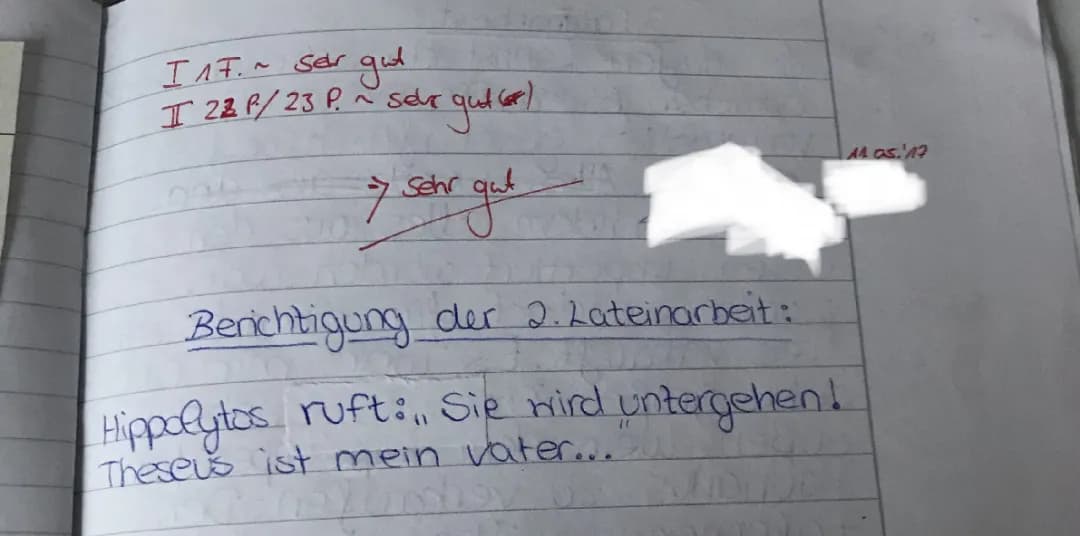 I 1 F. ~ sehr gut
II 22 P./ 23 P. ~ sehr gut (-)
→ sehr gut
11.05.'17
Berichtigung der 2. Lateinarbeit:
Hippolytos ruft: „Sie wird untergehen!
Theseus ist mein Vater...